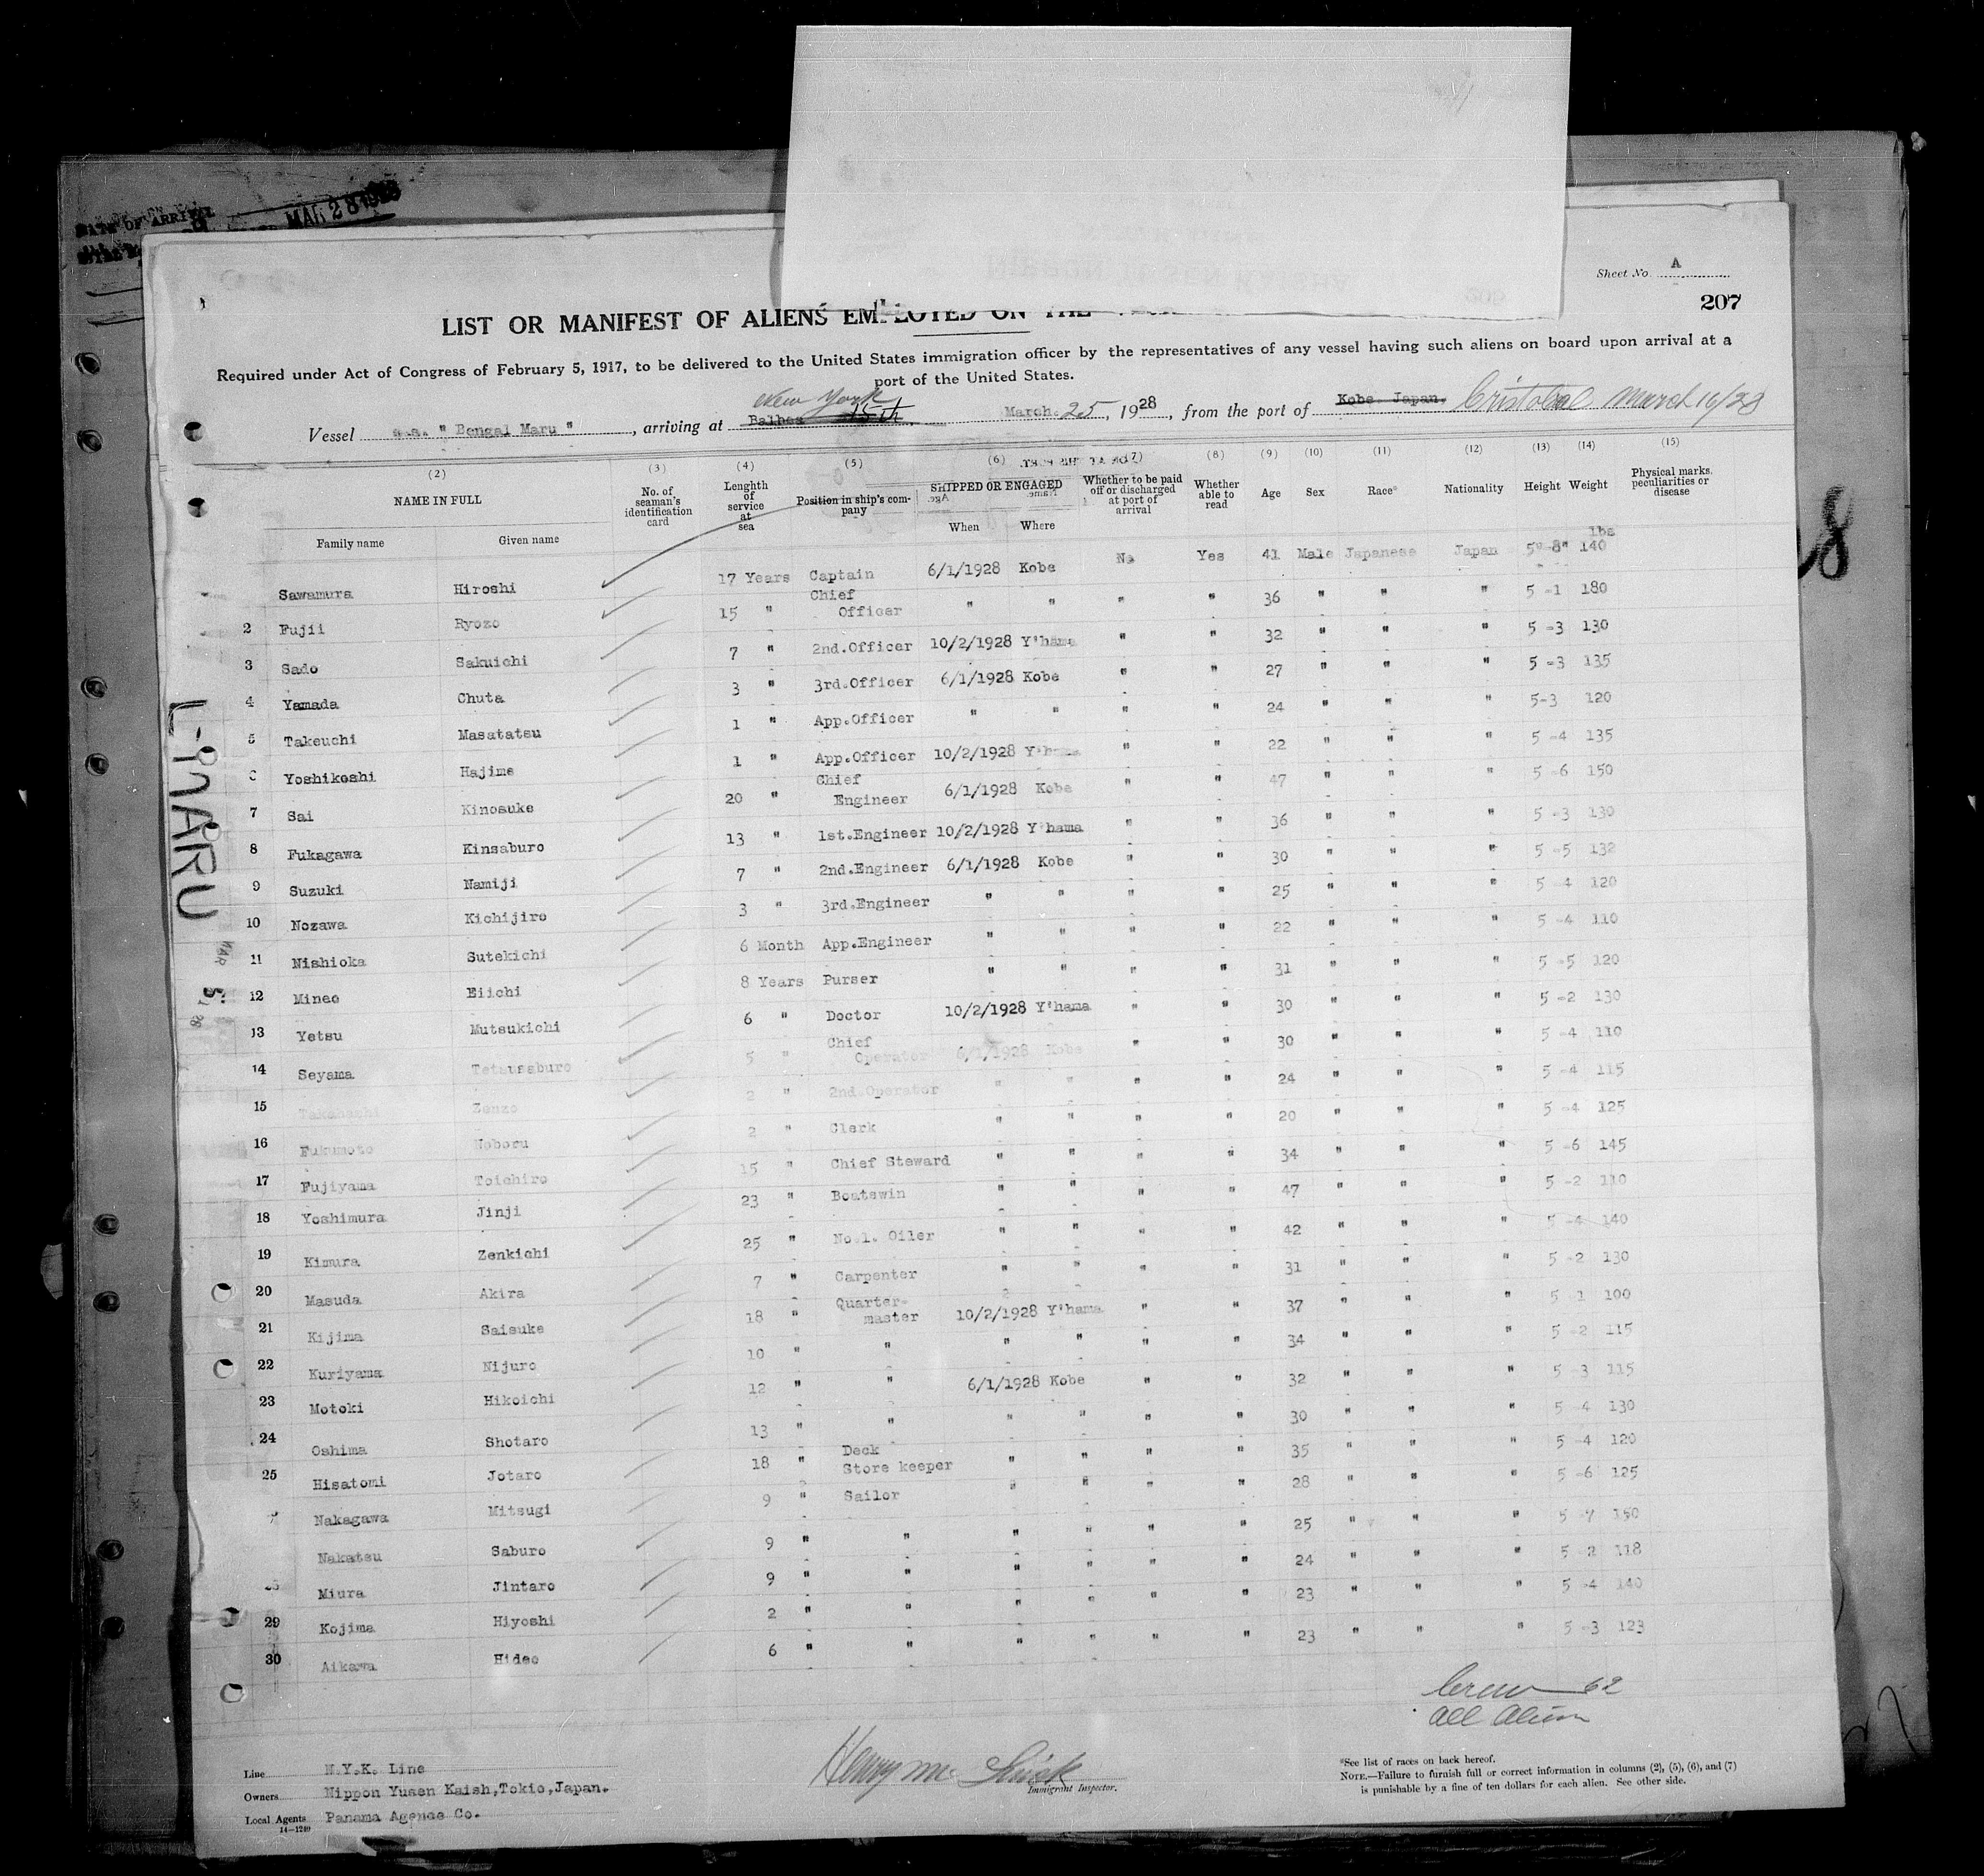 DATE OF ARRIVAL
MAR 28 1928
Sheet No. A
207
LIST OR MANIFEST OF ALIENS EMPLOYED ON THE
Required under Act of Congress of February 5, 1917, to be delivered to the United States immigration officer by the representatives of any vessel having such aliens on board upon arrival at a
port of the United States.
New York
Vessel s.s. " Bengal Maru ", arriving at Balboa 15th March 25, 1928, from the port of Kobe Japan. Cristobal March 16/28
(2) (3) (4) (5) (6) (7) (8) (9) (10) (11) (12) (13) (14) (15)
NAME IN FULL No. of seaman's identification card Lenghth of service at sea Position in ship's company SHIPPED OR ENGAGED Whether to be paid off or discharged at port of arrival Whether able to read Age Sex Race* Nationality Height Weight Physical marks, peculiarities or disease
Family name Given name When Where
lbs
Sawamura Hiroshi 17 Years Captain 6/1/1928 Kobe No Yes 41 Male Japanese Japan 5'-8" 140
2 Fujii Ryozo 15 " Chief Officer " " " " 36 " " " 5 -1 180
3 Sado Sakuichi 7 " 2nd.Officer 10/2/1928 Y'hama " " 32 " " " 5 -3 130
4 Yamada Chuta 3 " 3rd.Officer 6/1/1928 Kobe " " 27 " " " 5 -3 135
5 Takeuchi Masatatsu 1 " App.Officer " " " " 24 " " " 5-3 120
Yoshikoshi Hajime 1 " App.Officer 10/2/1928 Y'hama " " 22 " " " 5 -4 135
7 Sai Kinosuke 20 " Chief Engineer 6/1/1928 Kobe " " 47 " " " 5 -6 150
8 Fukagawa Kinsaburo 13 " 1st.Engineer 10/2/1928 Y'hama " " 36 " " " 5 -3 130
9 Suzuki Namiji 7 " 2nd.Engineer 6/1/1928 Kobe " " 30 " " " 5 -5 132
10 Nozawa Kichijiro 3 " 3rd.Engineer " " " " 25 " " " 5 -4 120
11 Nishioka Sutekichi 6 Month App.Engineer " " " " 22 " " " 5 -4 110
12 Mineo Eiichi 8 Years Purser " " " " 31 " " " 5 -5 120
13 Yetsu Mutsukichi 6 " Doctor 10/2/1928 Y'hama " " 30 " " " 5 -2 130
14 Seyama Tetsusaburo 5 " Chief Operator 6/1/1928 Kobe " " 30 " " " 5 -4 110
15 Takahashi Zenzo 2 " 2nd.Operator " " " " 24 " " " 5 -4 115
16 Fukumoto Noboru 2 " Clerk " " " " 20 " " " 5 -4 125
17 Fujiyama Toichiro 15 " Chief Steward " " " " 34 " " " 5 -6 145
18 Yoshimura Jinji 23 " Boatswin " " " " 47 " " " 5 -2 110
19 Kimura Zenkichi 25 " No.1. Oiler " " " " 42 " " " 5 -4 140
20 Masuda Akira 7 " Carpenter " " " " 31 " " " 5 -2 130
21 Kijima Saisuke 18 " Quarter-master 10/2/1928 Y'hama " " 37 " " " 5 -1 100
22 Kuriyama Nijuro 10 " " " " " " 34 " " " 5 -2 115
23 Motoki Hikoichi 12 " " 6/1/1928 Kobe " " 32 " " " 5 -3 115
24 Oshima Shotaro 13 " " " " " " 30 " " " 5 -4 130
25 Hisatomi Jotaro 18 " Deck Store keeper " " " " 35 " " " 5 -4 120
Nakagawa Mitsugi 9 " Sailor " " " " 28 " " " 5 -6 125
Nakatsu Saburo 9 " " " " " " 25 " " " 5 -7 150
Miura Jintaro 9 " " " " " " 24 " " " 5 -2 118
29 Kojima Hiyoshi 2 " " " " " " 23 " " " 5 -4 140
30 Aikawa Hideo 6 " " " " " " 23 " " " 5 -3 123
L-MARU
MAR
Crew 62
All Alien
Line N.Y.K. Line
Owners Nippon Yusen Kaish,Tokio,Japan.
Local Agents Panama Agence Co.
14-1240
Henry M.
Immigrant Inspector.
*See list of races on back hereof.
NOTE.—Failure to furnish full or correct information in columns (2), (5), (6), and (7)
is punishable by a fine of ten dollars for each alien. See other side.